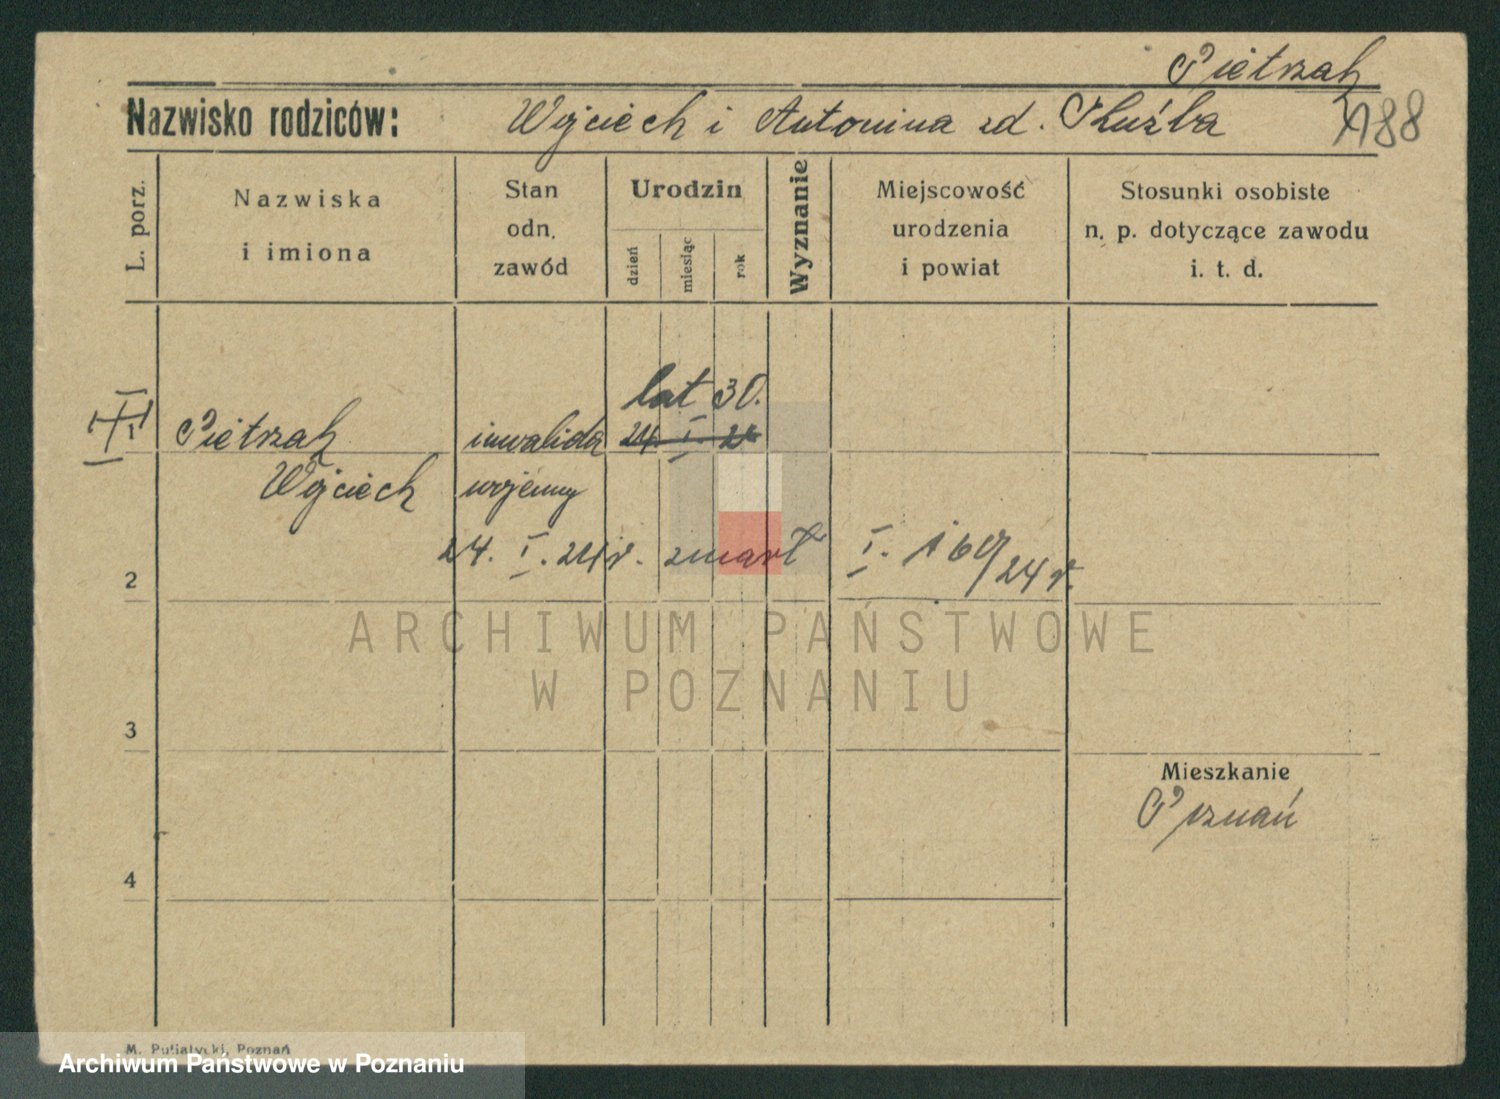 Pietrzak
Nazwisko rodziców: Wojciech i Antonina zd. Służba
188
L. porz.
Nazwiska
i imiona
Stan
odn.
zawód
Urodzin
dzień
miesiąc
rok
Wyznanie
Miejscowość
urodzenia
i powiat
Stosunki osobiste
n. p. dotyczące zawodu
i. t. d.
lat 30.
Pietrzak inwalida 24. I. 24
Wojciech wojenny
24. I. 24 r. zmarł I. 160/24 r.
2
ARCHIWUM PAŃSTWOWE
W POZNANIU
3
Mieszkanie
Poznań
4
M. Putiatycki, Poznań
Archiwum Państwowe w Poznaniu